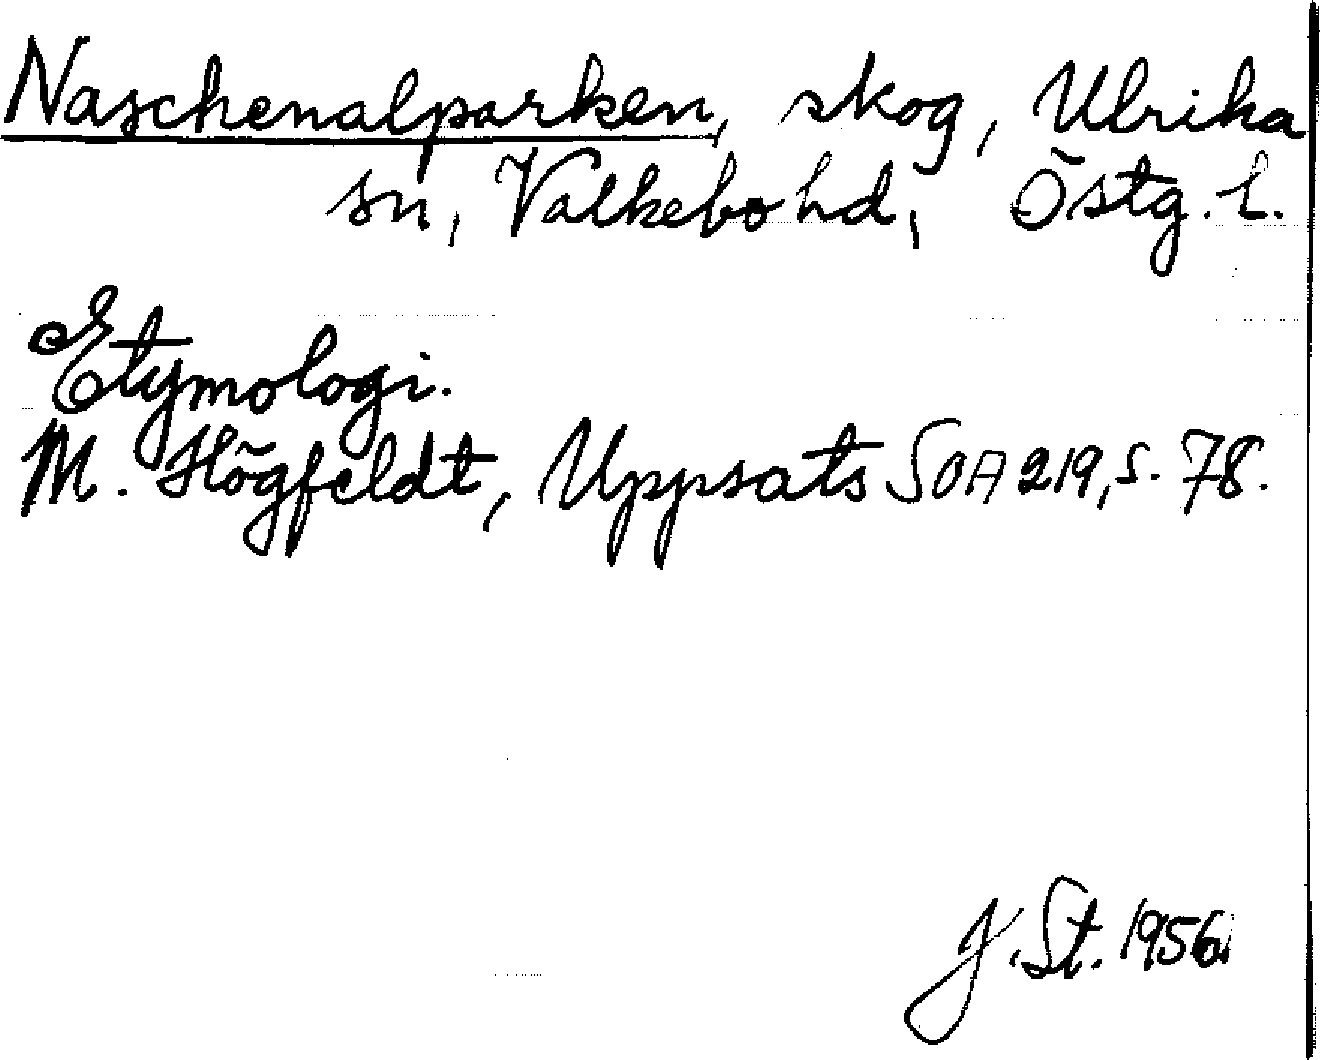 Naschenalparken, skog, Ulrika
sn, Valkebo hd, Östg. l.
Etymologi.
M. Högfeldt, Uppsats SOA 219, s. 78.
J. St. 1956